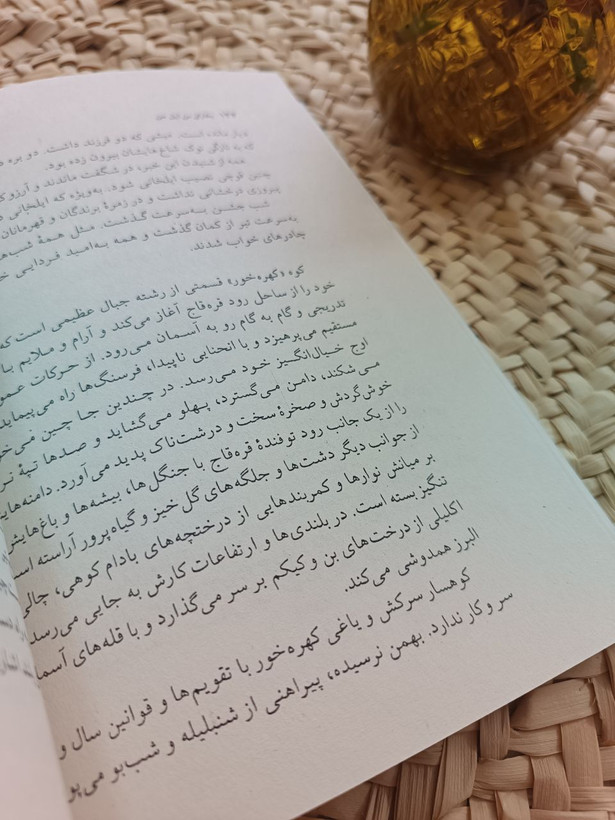 دیار مانده است. میشی که دو فرزند داشت. دو بره
که به تازگی نوک شاخ‌هایشان بیرون زده بود.
همه از شنیدن این خبر در شگفت ماندند و آرزو
چنین قوچی نصیب ایلخانی شود. به‌ویژه که ایلخانی
پیروزی درخشانی نداشت و در زمرهٔ برندگان و قهرمانان
شب جشن به‌سرعت گذشت. مثل همهٔ
به‌سرعت تیر از کمان گذشت و همه به‌امید فردایی
چادرهای خواب شدند.
کوه «کهره‌خور» قسمتی از رشته جبال عظیمی است که
خود را از ساحل رود قره‌قاج آغاز می‌کند و آرام و ملایم با
تدریجی و گام به گام رو به آسمان می‌رود. از حرکات
مستقیم می‌پرهیزد و با انحنایی ناپیدا، فرسنگ‌ها راه می‌پیماید
اوج خیال‌انگیز خود می‌رسد. در چندین جا چین
می‌شکند، دامن می‌گسترد، پهلو می‌گشاید و صدها تپهٔ
خوش‌گردش و صخرهٔ سخت و درشت‌ناک پدید می‌آورد. دامنه‌های
را از یک جانب رود توفندهٔ قره‌قاج با جنگل‌ها، بیشه‌ها و باغ‌هایش
از جوانب دیگر دشت‌ها و جلگه‌های گل خیز و گیاه‌پرور آراسته
بر میانش نوارها و کمربندهایی از درختچه‌های بادام کوهی،
تنگیز بسته است. در بلندی‌ها و ارتفاعات کارش به جایی می‌رسد
اکلیلی از درخت‌های بن و کیکم بر سر می‌گذارد و با قله‌های
البرز همدوشی می‌کند.
کوهسار سرکش و یاغی کهره‌خور با تقویم‌ها و قوانین سال و
سر و کار ندارد. بهمن نرسیده، پیراهنی از شنبلیله و شب‌بو